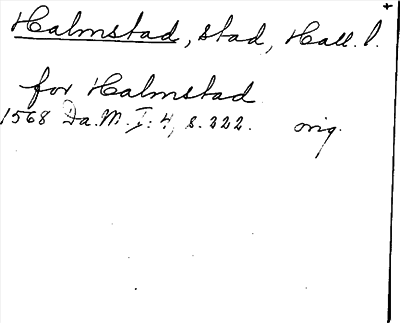 Halmstad, stad, Hall. l.
for Halmstad
1568 Da. M. I: 4, s. 222. orig.